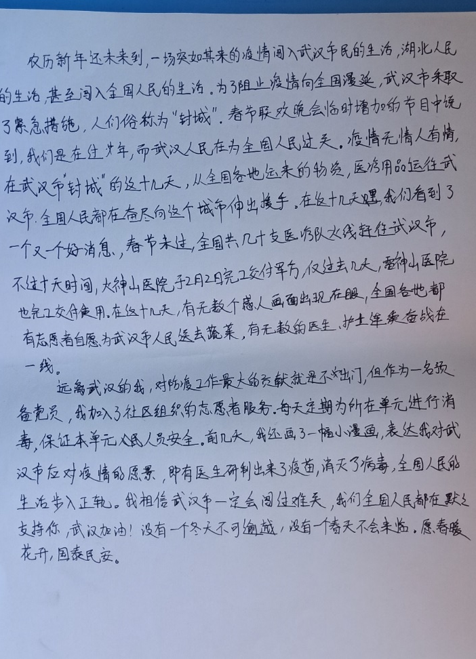 农历新年还未来到,一场突如其来的疫情闯入武汉市民的生活,湖北人民
的生活,甚至闯入全国人民的生活。为了阻止疫情向全国漫延,武汉市采取
了紧急措施,人们俗称为“封城”。春节联欢晚会临时增加的节目中说
到,我们是在过年,而武汉人民在为全国人民过关。疫情无情人有情,
在武汉市“封城”的这十几天,从全国各地运来的物资,医疗用品运往武
汉市.全国人民都在奋尽向这个城市伸出援手。在这十几天里,我们看到了
一个又一个好消息,春节未过,全国共几十支医疗队火线赶往武汉市,
不过十天时间,火神山医院于2月2日完工交付军方,仅过去几天,雷神山医院
也完工交付使用.在这十几天,有无数个感人画面出现在眼,全国各地都
有志愿者自愿为武汉市人民送去蔬菜,有无数的医生、护士连夜奋战在
一线。
远离武汉的我,对防疫工作最大的贡献就是不出门,但作为一名预
备党员,我加入了社区组织的志愿者服务。每天定期为所在单元进行消
毒,保证本单元人民人员安全。前几天,我还画了一幅小漫画,表达我对武
汉市应对疫情的愿景,即有医生研制出来了疫苗,消灭了病毒,全国人民的
生活步入正轨。我相信武汉市一定会闯过难关,我们全国人民都在默默
支持你,武汉加油!没有一个冬天不可逾越,没有一个春天不会来临。愿春暖
花开,国泰民安。